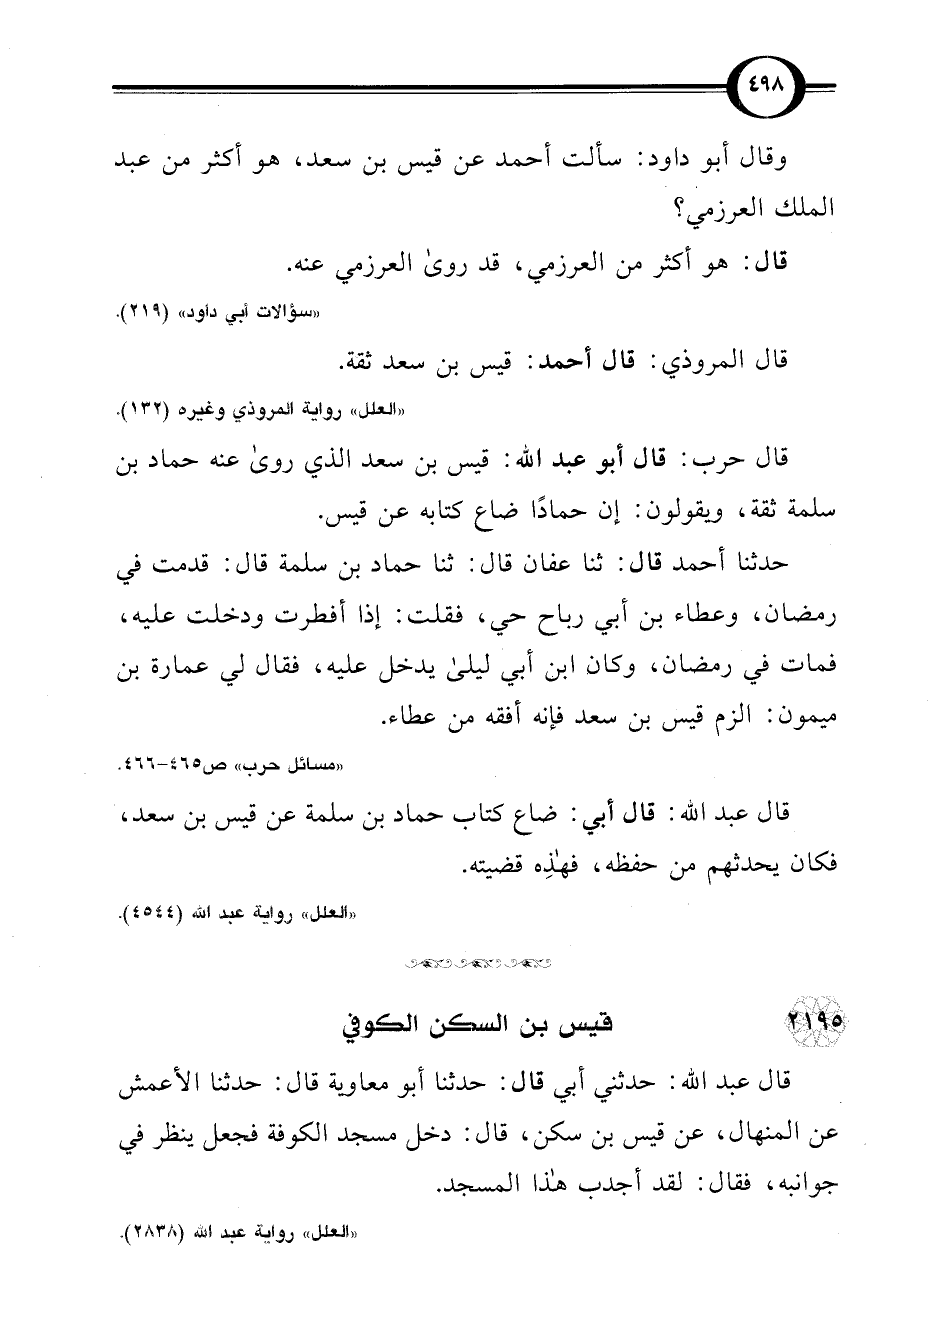 ٤٩٨
وقال أبو داود: سألت أحمد عن قيس بن سعد، هو أكثر من عبد
الملك العرزمي؟
قال: هو أكثر من العرزمي، قد روىٰ العرزمي عنه.
«سؤالات أبي داود» (٢١٩).
قال المروذي: قال أحمد: قيس بن سعد ثقة.
«العلل» رواية المروذي وغيره (١٣٢).
قال حرب: قال أبو عبد الله: قيس بن سعد الذي روىٰ عنه حماد بن
سلمة ثقة، ويقولون: إن حمادًا ضاع كتابه عن قيس.
حدثنا أحمد قال: ثنا عفان قال: ثنا حماد بن سلمة قال: قدمت في
رمضان، وعطاء بن أبي رباح حي، فقلت: إذا أفطرت ودخلت عليه،
فمات في رمضان، وكان ابن أبي ليلىٰ يدخل عليه، فقال لي عمارة بن
ميمون: الزم قيس بن سعد فإنه أفقه من عطاء.
«مسائل حرب» ص٤٦٥-٤٦٦.
قال عبد الله: قال أبي: ضاع كتاب حماد بن سلمة عن قيس بن سعد،
فكان يحدثهم من حفظه، فهٰذِه قضيته.
«العلل» رواية عبد الله (٤٥٤٤).
٢١٩٥ قيس بن السكن الكوفي
قال عبد الله: حدثني أبي قال: حدثنا أبو معاوية قال: حدثنا الأعمش
عن المنهال، عن قيس بن سكن، قال: دخل مسجد الكوفة فجعل ينظر في
جوانبه، فقال: لقد أجدب هٰذا المسجد.
«العلل» رواية عبد الله (٢٨٣٨).